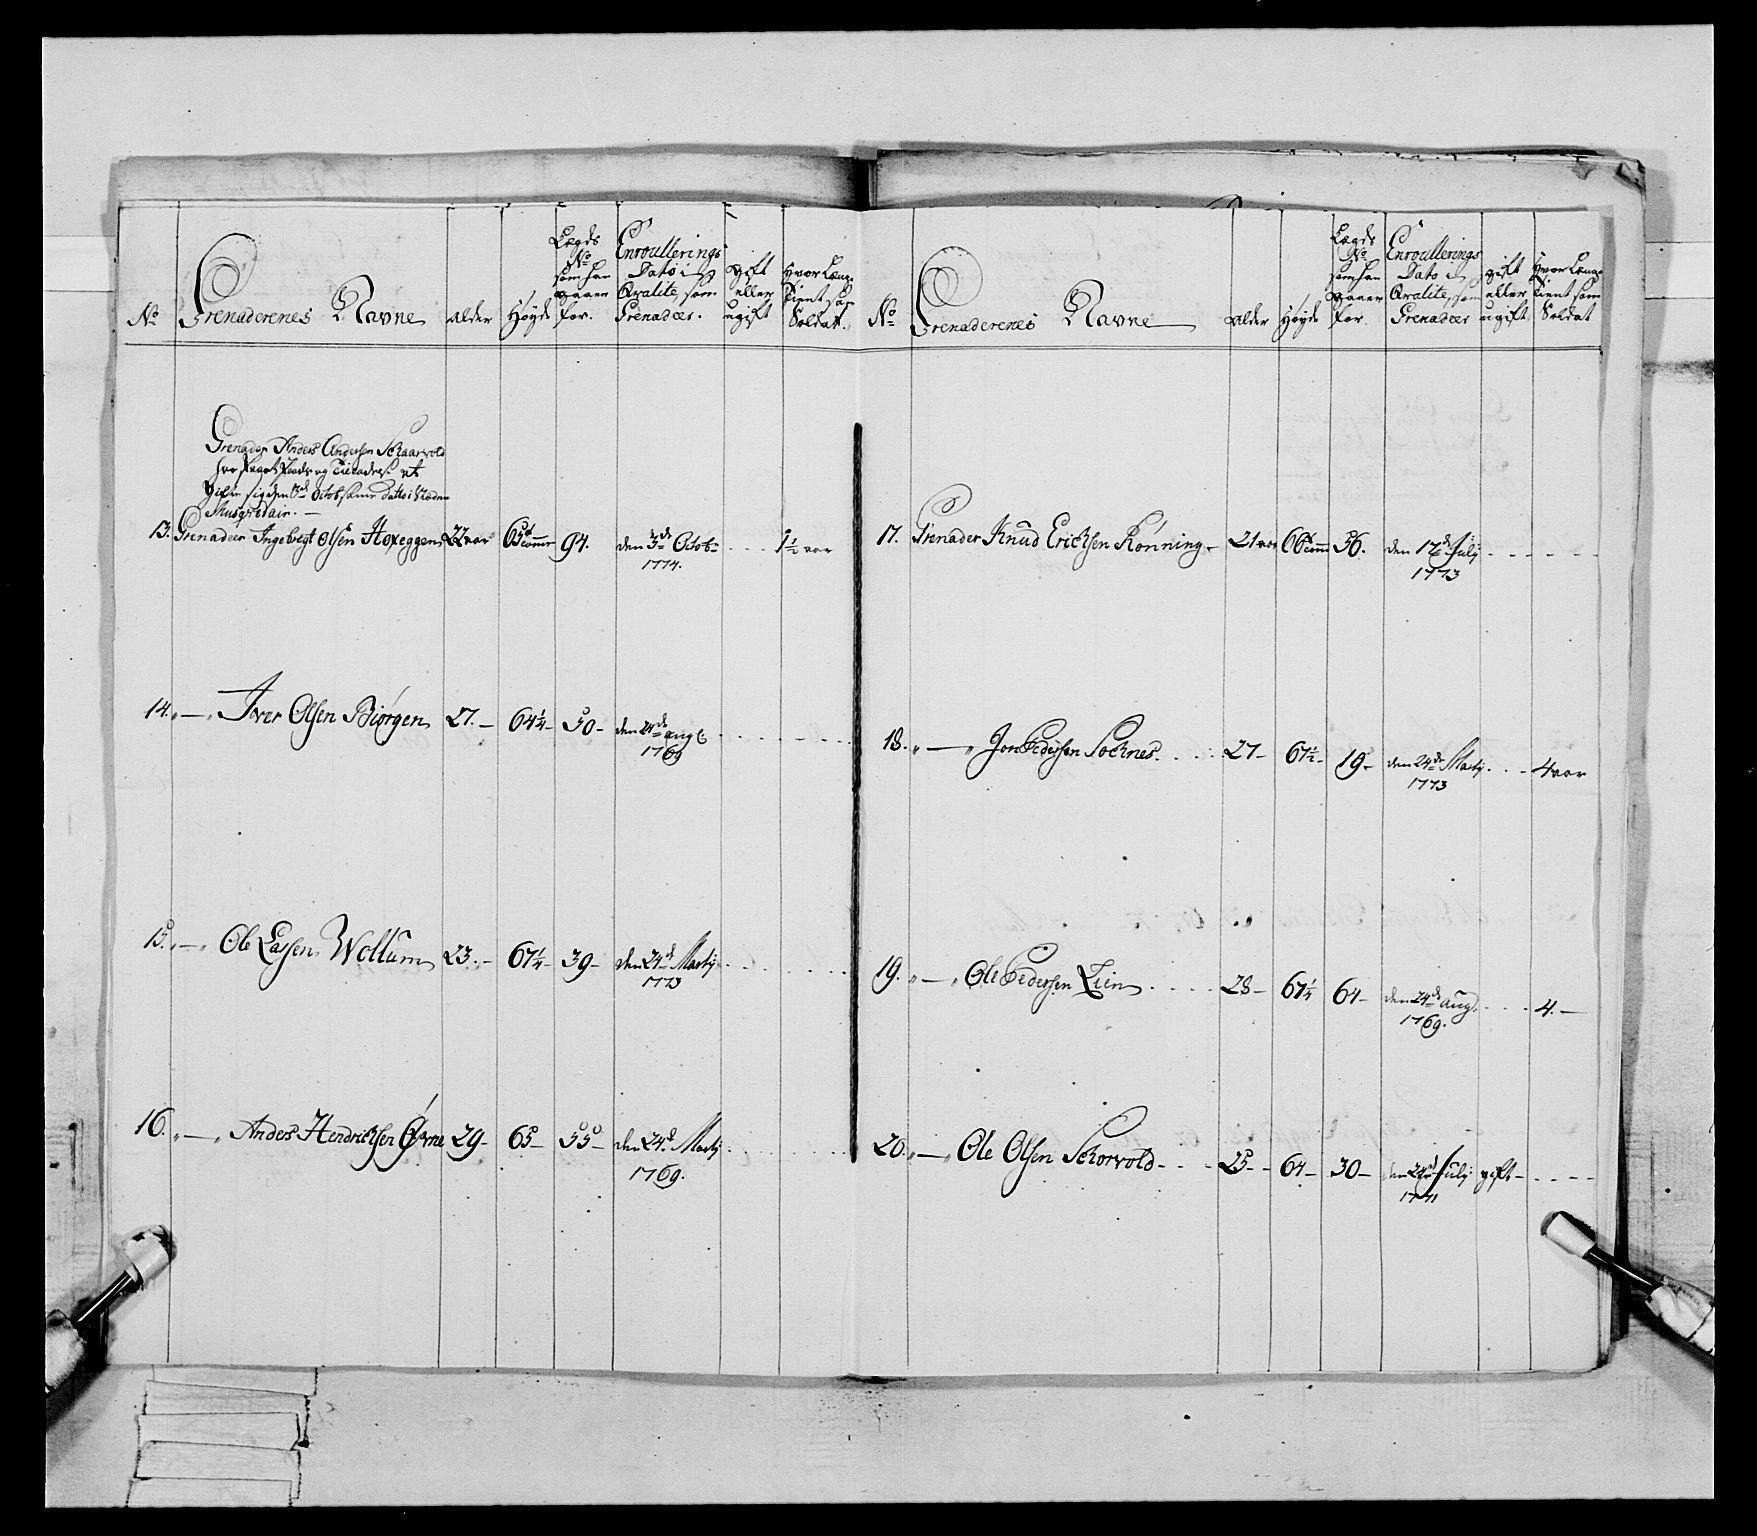 No
Grenaderenes Navne
alder
Høyde
Lægds
No
som han
for.
Enroullerings
Dato i
Qvalite, som
Grenadeer.
gift
eller
ugift
Hvor Længe
tient som
Soldat.
Grenader Anders Andersen Schaarvold
13. Grenadeer Ingebregt Olsen Hoxeggen 22 aar 65 94. den 3de Octob: 1 1/2 aar
1774.
14. „—„ Iver Olsen Biørgen 27.— 64 1/4— 50— den 24de aug:
1769
15. „—„ Ole Larsen Wollum 23.— 67 1/4— 39— den 24de Martj
1773
16. „—„ Anders Hendrichsen Øyrne 29— 65— 55— den 24de Martj
1769.
No
Grenaderenes Navne
alder
Høyde
Lægds
No
som han
for
Enroullerings
Dato i
Qvalite, som
Grenadeer
gift
eller
ugift
Hvor Længe
tient som
Soldat
17. Grenader Knud Erichsen Rønning— 21 aar 66 36. den 12de Julij
1773
18. „—„ Jon Pedersen Soknes 27— 67 1/2— 19— den 24de Martj 4 aar
1773
19. „—„ Ole Pedersen Lien 28— 67 1/4 64— den 24de aug: 4.—
1769.
20. „—„ Ole Olsen Schorvold 25— 64— 30— den 24de Julij gift—
1771